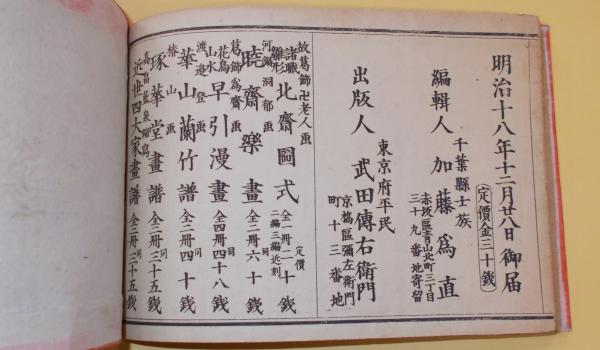 明治十八年十二月廿八日御届
定價金三十銭
編輯人
千葉縣士族
加藤爲直
赤坂區青山北町三丁目
三十九番地寄留
出版人
東京府平民
武田傳右衛門
京橋區彌左衛門
町十三番地
故葛飾卍老人画
諸職雛形
北齋圖式
全一冊 定價二十銭
二編三編近刻
河鍋洞郁画
曉齋樂畫
全二冊 同六十銭
葛飾爲齋画
花鳥山水
早引漫畫
全四冊 同四十八銭
渡邉登画
華山蘭竹譜
全二冊 同四十銭
椿山画
琢華堂畫譜
全三冊 同三十五銭
高畠藍泉縮寫
近世四大家畫譜
全三冊 同三十五銭